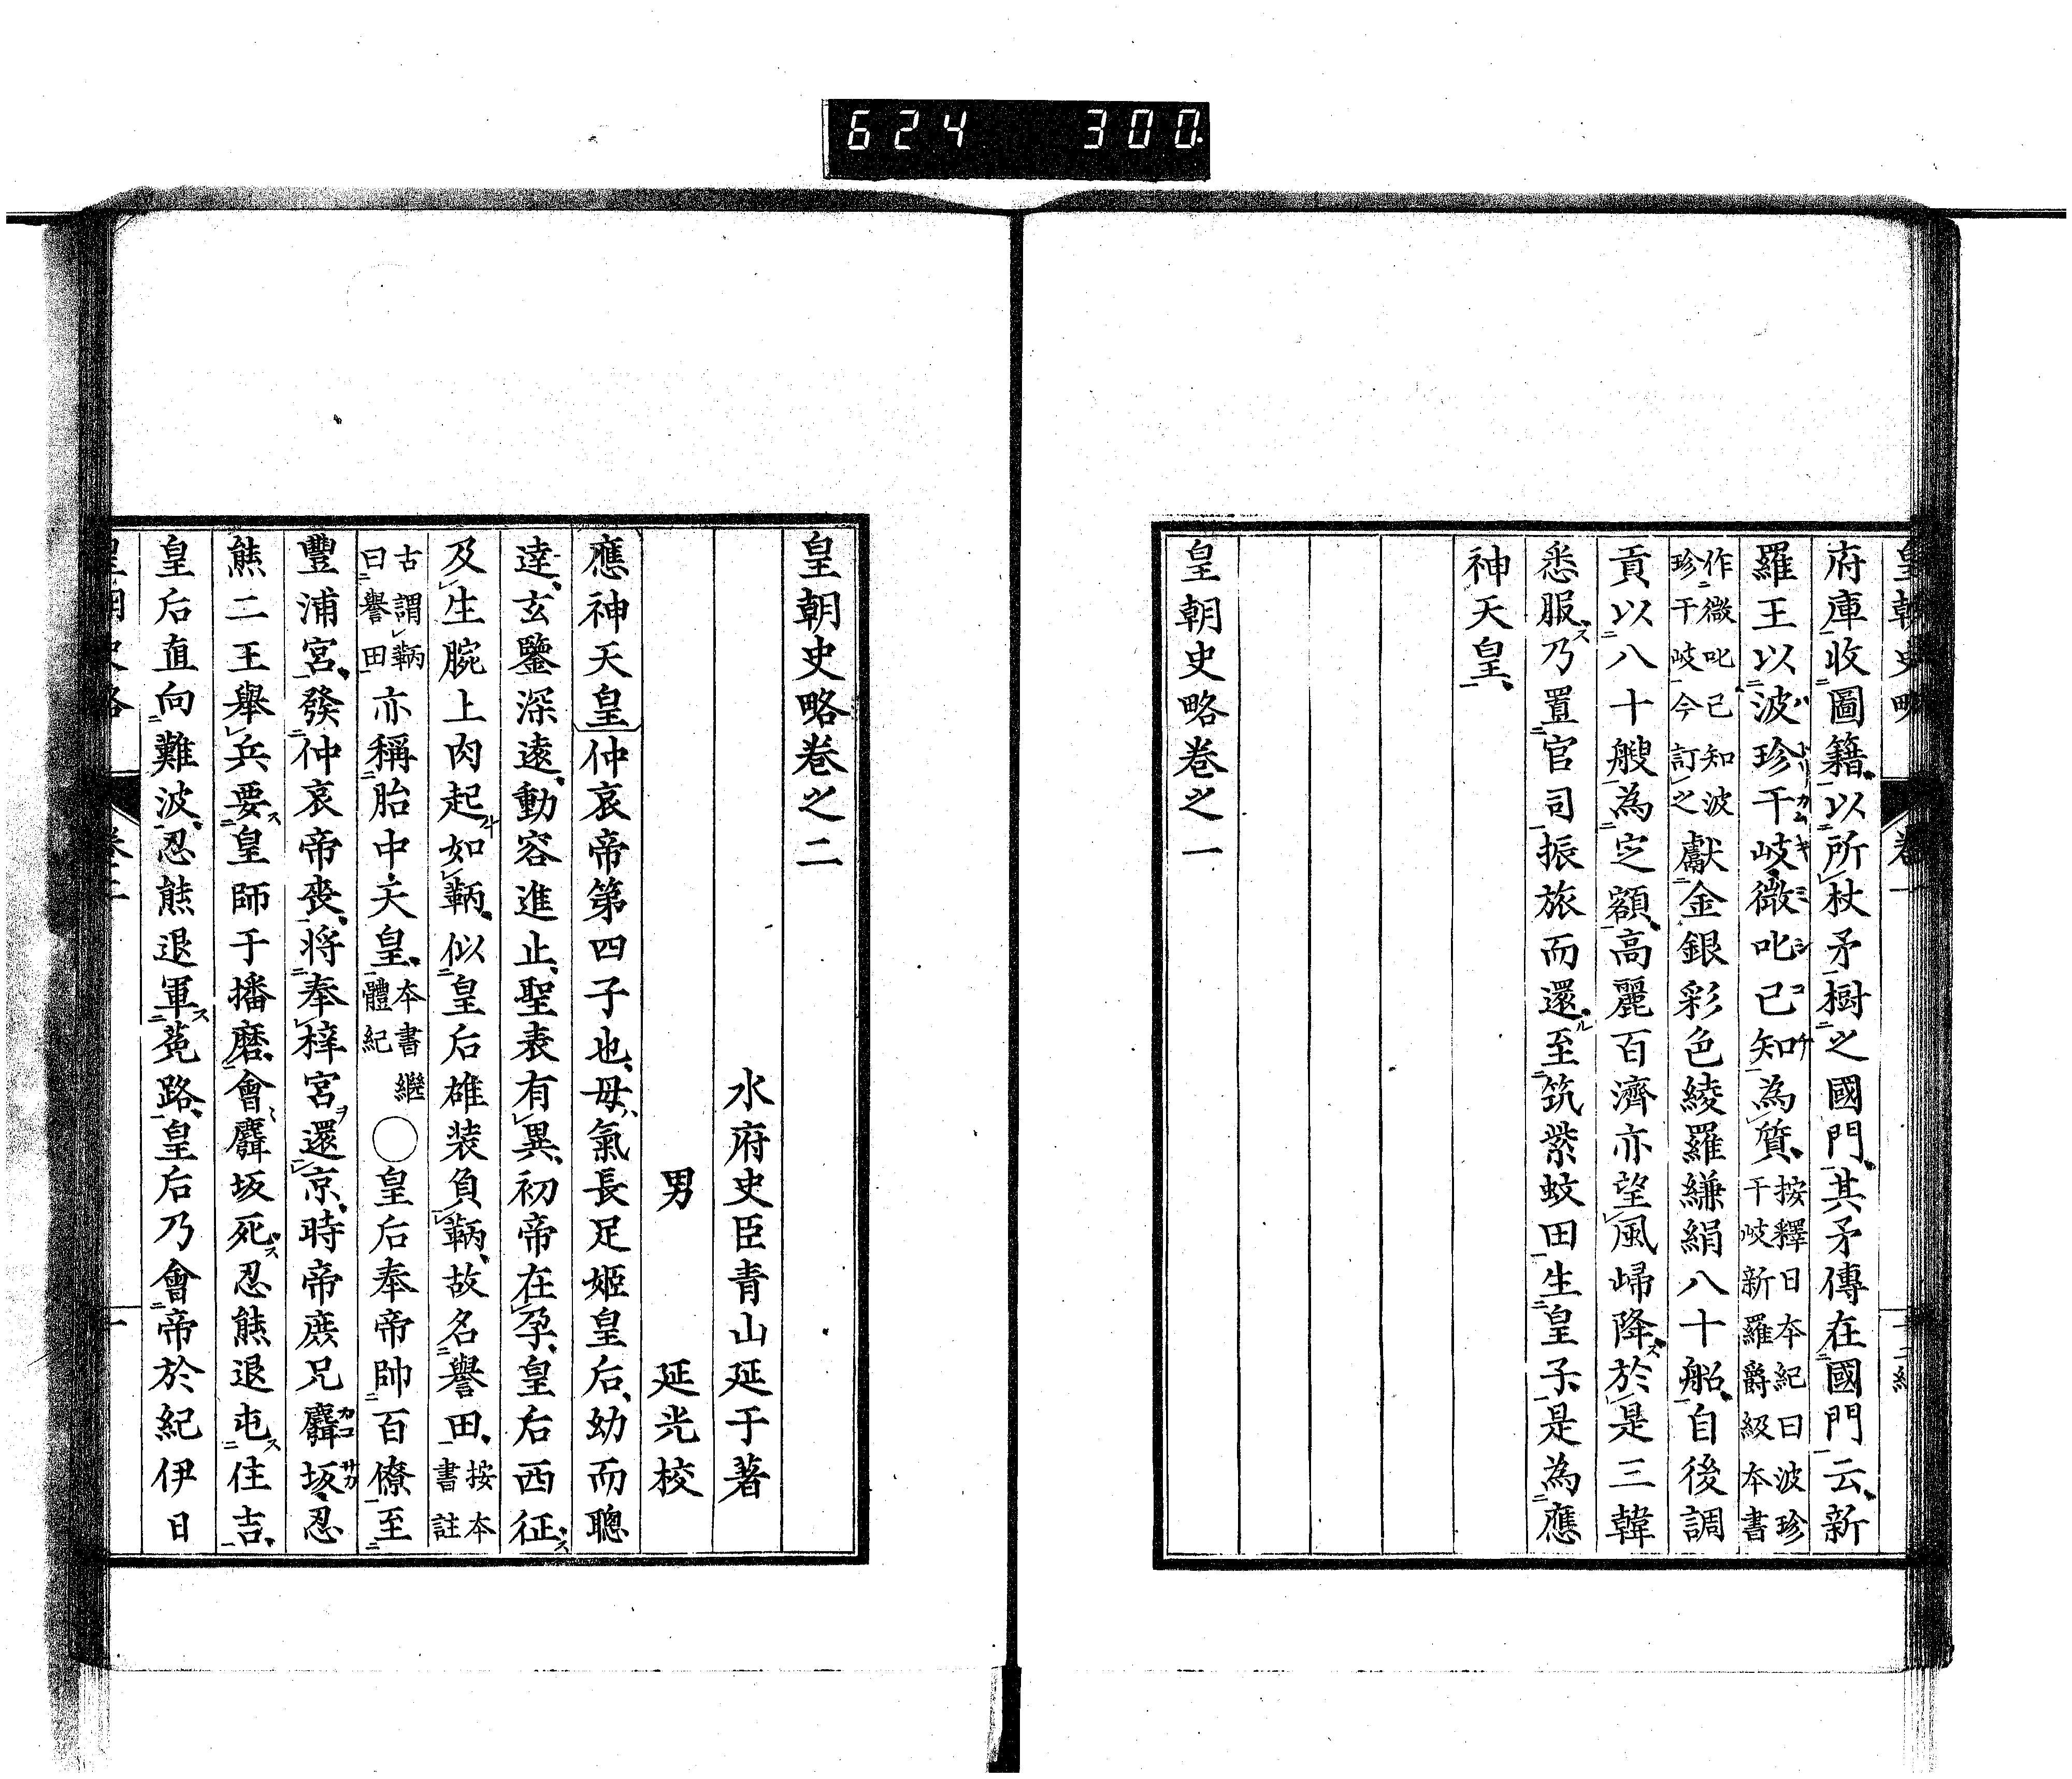 624 300
皇朝史略 卷一
府庫收圖籍以所杖矛樹之國門其矛傳在國門云新
羅王以波珍干岐微叱己知為質按釋日本紀曰波珍干岐新羅爵級本書
作微叱己知波珍干岐今訂之獻金銀彩色綾羅縑絹八十船自後調
貢以八十艘為定額高麗百濟亦望風歸降於是三韓
悉服乃置官司振旅而還至筑紫蚊田生皇子是為應
神天皇
皇朝史略卷之一
皇朝史略卷之二
水府史臣青山延于著
男 延光校
應神天皇仲哀帝第四子也母氣長足姬皇后幼而聰
達玄鑒深遠動容進止聖表有異初帝在孕皇后西征
及生腕上肉起如鞆似皇后雄装負鞆故名譽田按本書註
古謂鞆曰譽田亦稱胎中天皇本書繼體紀〇皇后奉帝帥百僚至
豐浦宮發仲哀帝喪将奉梓宮還京時帝庶兄麛坂忍
熊二王舉兵要皇師于播磨會麛坂死忍熊退屯住吉
皇后直向難波忍熊退軍菟路皇后乃會帝於紀伊日
皇朝史略 卷二 一